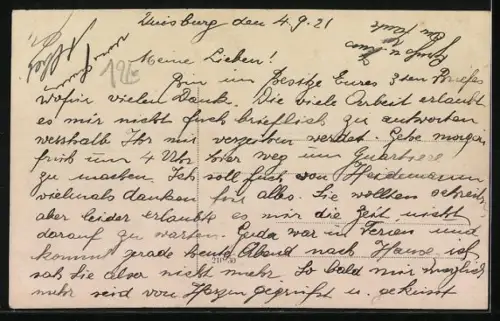 Duisburg den 4.9.21
Meine Lieben!
Bin im Besitze Eures 3ten Briefes
wofür vielen Dank. Die viele Arbeit erlaubt
es mir nicht Euch brieflich zu antworten
wesshalb Ihr mir verzeihen werdet. Gehe morgen
früh um 4 Uhr hier weg um Quartiere
zu machen. Ich soll Euch von Heidemann
vielmals danken für alles. Sie wollten schreib.
aber leider erlaubt es mir die Zeit nicht
darauf zu warten. Guda war in Ferien und
kommt gerade heute Abend nach Hause, ich
sah Sie also nicht mehr. So bald mir möglich
mehr seid von Herzen gegrüßt u. geküsst